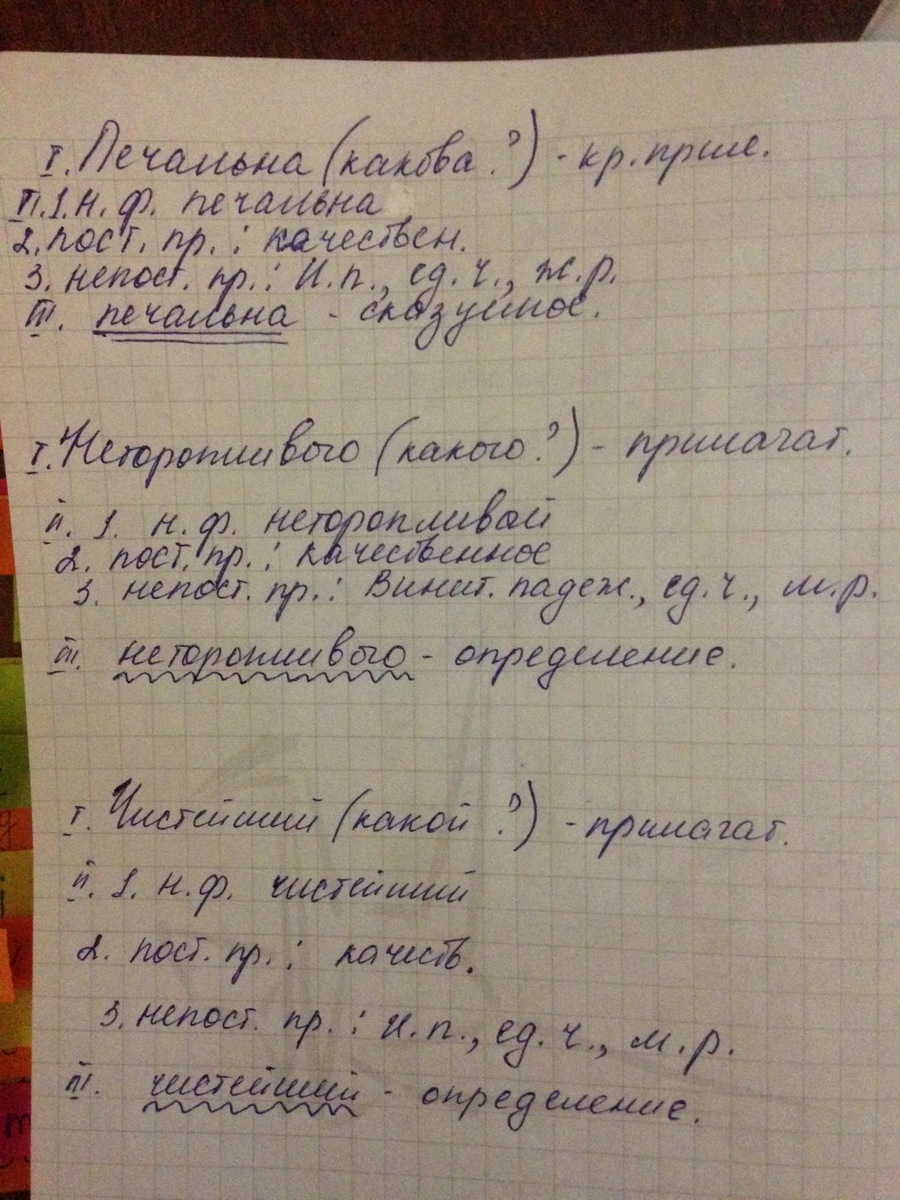 I. Печальна (какова?) - кр. прил.
II. 1. н. ф. печальна
2. пост. пр.: качествен.
3. непост. пр.: И.п., ед.ч., ж.р.
III. печальна - сказуемое.
I. Неторопливого (какого?) - прилагат.
II. 1. н. ф. неторопливой
2. пост. пр.: качественное
3. непост. пр.: Винит. падеж., ед.ч., м.р.
III. неторопливого - определение.
I. Чистейший (какой?) - прилагат.
II. 1. н.ф. чистейший
2. пост. пр.: качеств.
3. непост. пр.: И.п., ед.ч., м.р.
III. чистейший - определение.